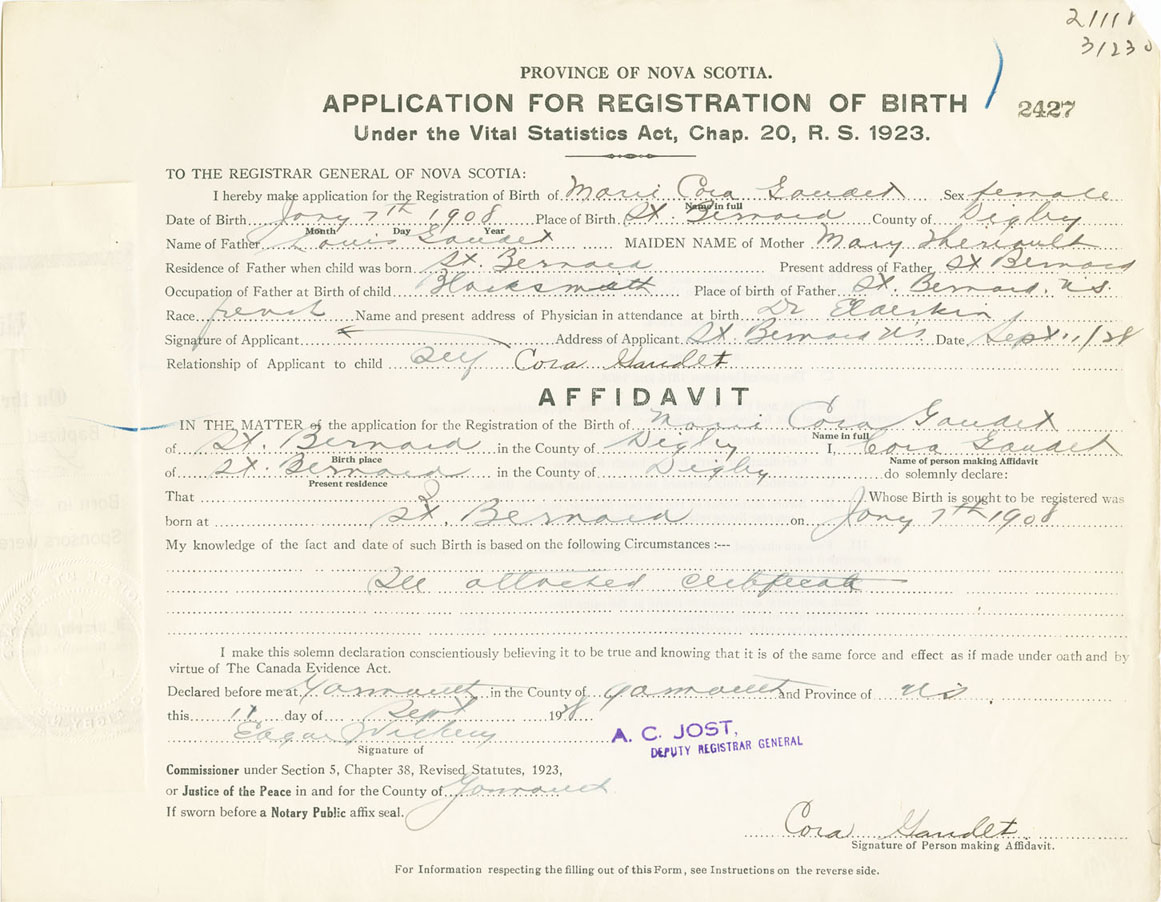 21111
3123
PROVINCE OF NOVA SCOTIA.
APPLICATION FOR REGISTRATION OF BIRTH
2427
Under the Vital Statistics Act, Chap. 20, R. S. 1923.
TO THE REGISTRAR GENERAL OF NOVA SCOTIA:
I hereby make application for the Registration of Birth of Marie Cora Gaudet Sex female
Name in full
Date of Birth Jany 7th 1908 Place of Birth St. Bernard County of Digby
Month Day Year
Name of Father Louis Gaudet MAIDEN NAME of Mother Mary Theriault
Residence of Father when child was born St. Bernard Present address of Father St Bernard
Occupation of Father at Birth of child Blacksmith Place of birth of Father St. Bernard, N.S.
Race french Name and present address of Physician in attendance at birth Dr Elderkin
Signature of Applicant Address of Applicant St Bernard NS. Date Sept. 11/28
Relationship of Applicant to child Self Cora Gaudet
AFFIDAVIT
IN THE MATTER of the application for the Registration of the Birth of Marie Cora Gaudet
Name in full
of St. Bernard in the County of Digby I, Cora Gaudet
Birth place Name of person making Affidavit
of St. Bernard in the County of Digby do solemnly declare:
Present residence
That I Whose Birth is sought to be registered was
born at St. Bernard on Jany 7th 1908
My knowledge of the fact and date of such Birth is based on the following Circumstances :---
See attached certificate
I make this solemn declaration conscientiously believing it to be true and knowing that it is of the same force and effect as if made under oath and by
virtue of The Canada Evidence Act.
Declared before me at Yarmouth in the County of Yarmouth and Province of NS
this 11 day of Sept 1928
Edgar Vickery
Signature of
A. C. JOST,
DEPUTY REGISTRAR GENERAL
Commissioner under Section 5, Chapter 38, Revised Statutes, 1923,
or Justice of the Peace in and for the County of Yarmouth
If sworn before a Notary Public affix seal.
Cora Gaudet
Signature of Person making Affidavit.
For Information respecting the filling out of this Form, see Instructions on the reverse side.